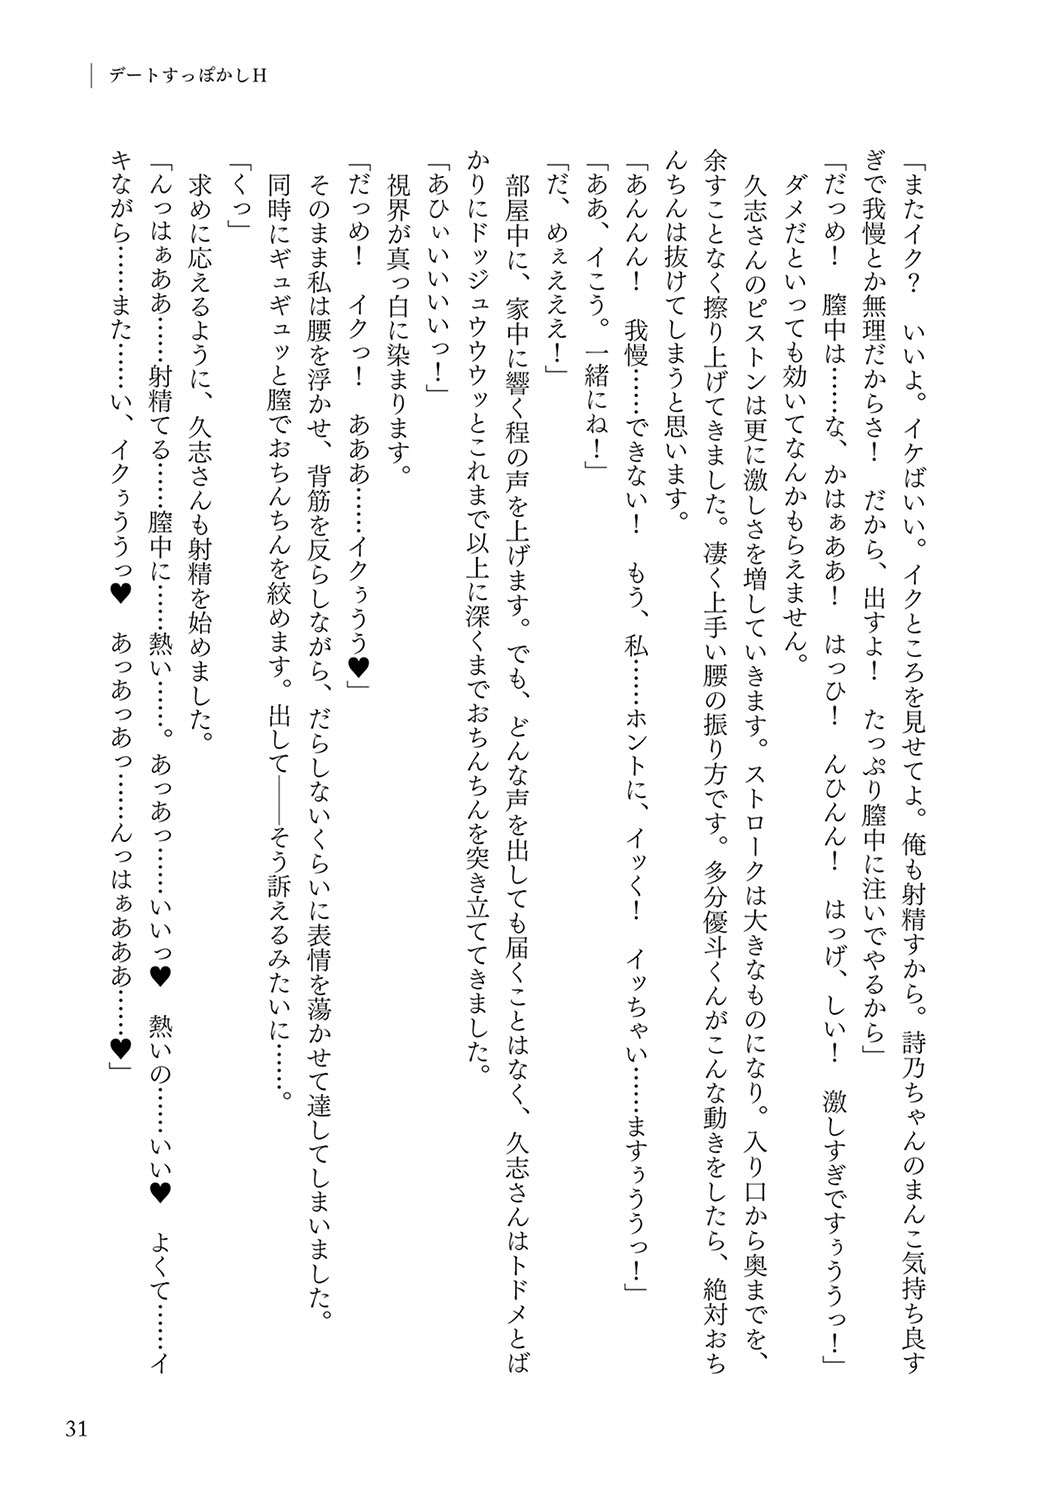 デートすっぽかしH
「またイク？　いいよ。イケばいい。イクところを見せてよ。俺も射精すから。詩乃ちゃんのまんこ気持ち良す
ぎで我慢とか無理だからさ！　だから、出すよ！　たっぷり膣中に注いでやるから」
「だっめ！　膣中は……な、かはぁああ！　はっひ！　んひんん！　はっげ、しい！　激しすぎですぅううっ！」
ダメだといっても効いてなんかもらえません。
久志さんのピストンは更に激しさを増していきます。ストロークは大きなものになり。入り口から奥までを、
余すことなく擦り上げてきました。凄く上手い腰の振り方です。多分優斗くんがこんな動きをしたら、絶対おち
んちんは抜けてしまうと思います。
「あんんん！　我慢……できない！　もう、私……ホントに、イッく！　イッちゃい……ますぅううっ！」
「ああ、イこう。一緒にね！」
「だ、めぇえええ！」
部屋中に、家中に響く程の声を上げます。でも、どんな声を出しても届くことはなく、久志さんはトドメとば
かりにドッジュウウウッとこれまで以上に深くまでおちんちんを突き立ててきました。
「あひぃいいいいっ！」
視界が真っ白に染まります。
「だっめ！　イクっ！　あああ……イクぅうう♥」
そのまま私は腰を浮かせ、背筋を反らしながら、だらしないくらいに表情を蕩かせて達してしまいました。
同時にギュギュッと膣でおちんちんを絞めます。出して――そう訴えるみたいに……。
「くっ」
求めに応えるように、久志さんも射精を始めました。
「んっはぁああ……射精てる……膣中に……熱い……。あっあっ……いいっ♥　熱いの……いい♥　よくて……イ
キながら……また……い、イクぅううっ♥　あっあっあっ……んっはぁあああ……♥」
31